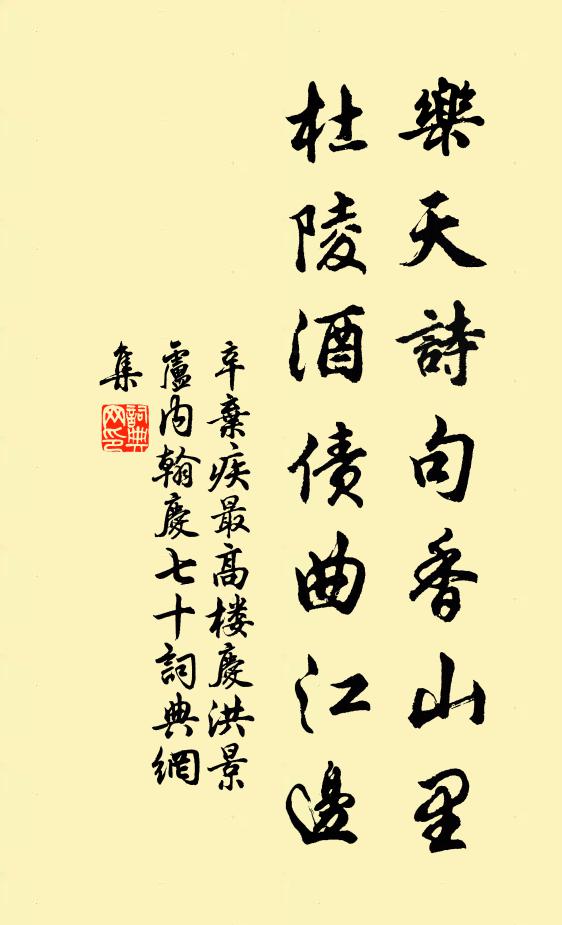 樂天詩句香山里
杜陵酒債曲江邊
辛棄疾最高楼慶洪景
盧内翰慶七十詞典網
集
詞典網印